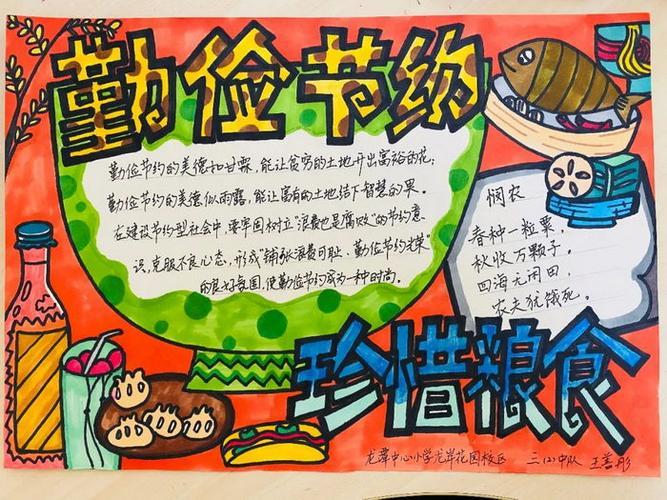 勤俭节约
勤俭节约的美德如甘霖,能让贫穷的土地开出富裕的花;
勤俭节约的美德似雨露,能让富有的土地结下智慧的果。
在建设节约型社会中,要牢固树立"浪费也是腐败"的节约意
识,克服不良心态,形成"铺张浪费可耻、勤俭节约光荣"
的良好氛围,使勤俭节约成为一种时尚。
悯农
春种一粒粟,
秋收万颗子。
四海无闲田,
农夫犹饿死。
珍惜粮食
龙潭中心小学龙岸花园校区 三(2)中队 王善彤